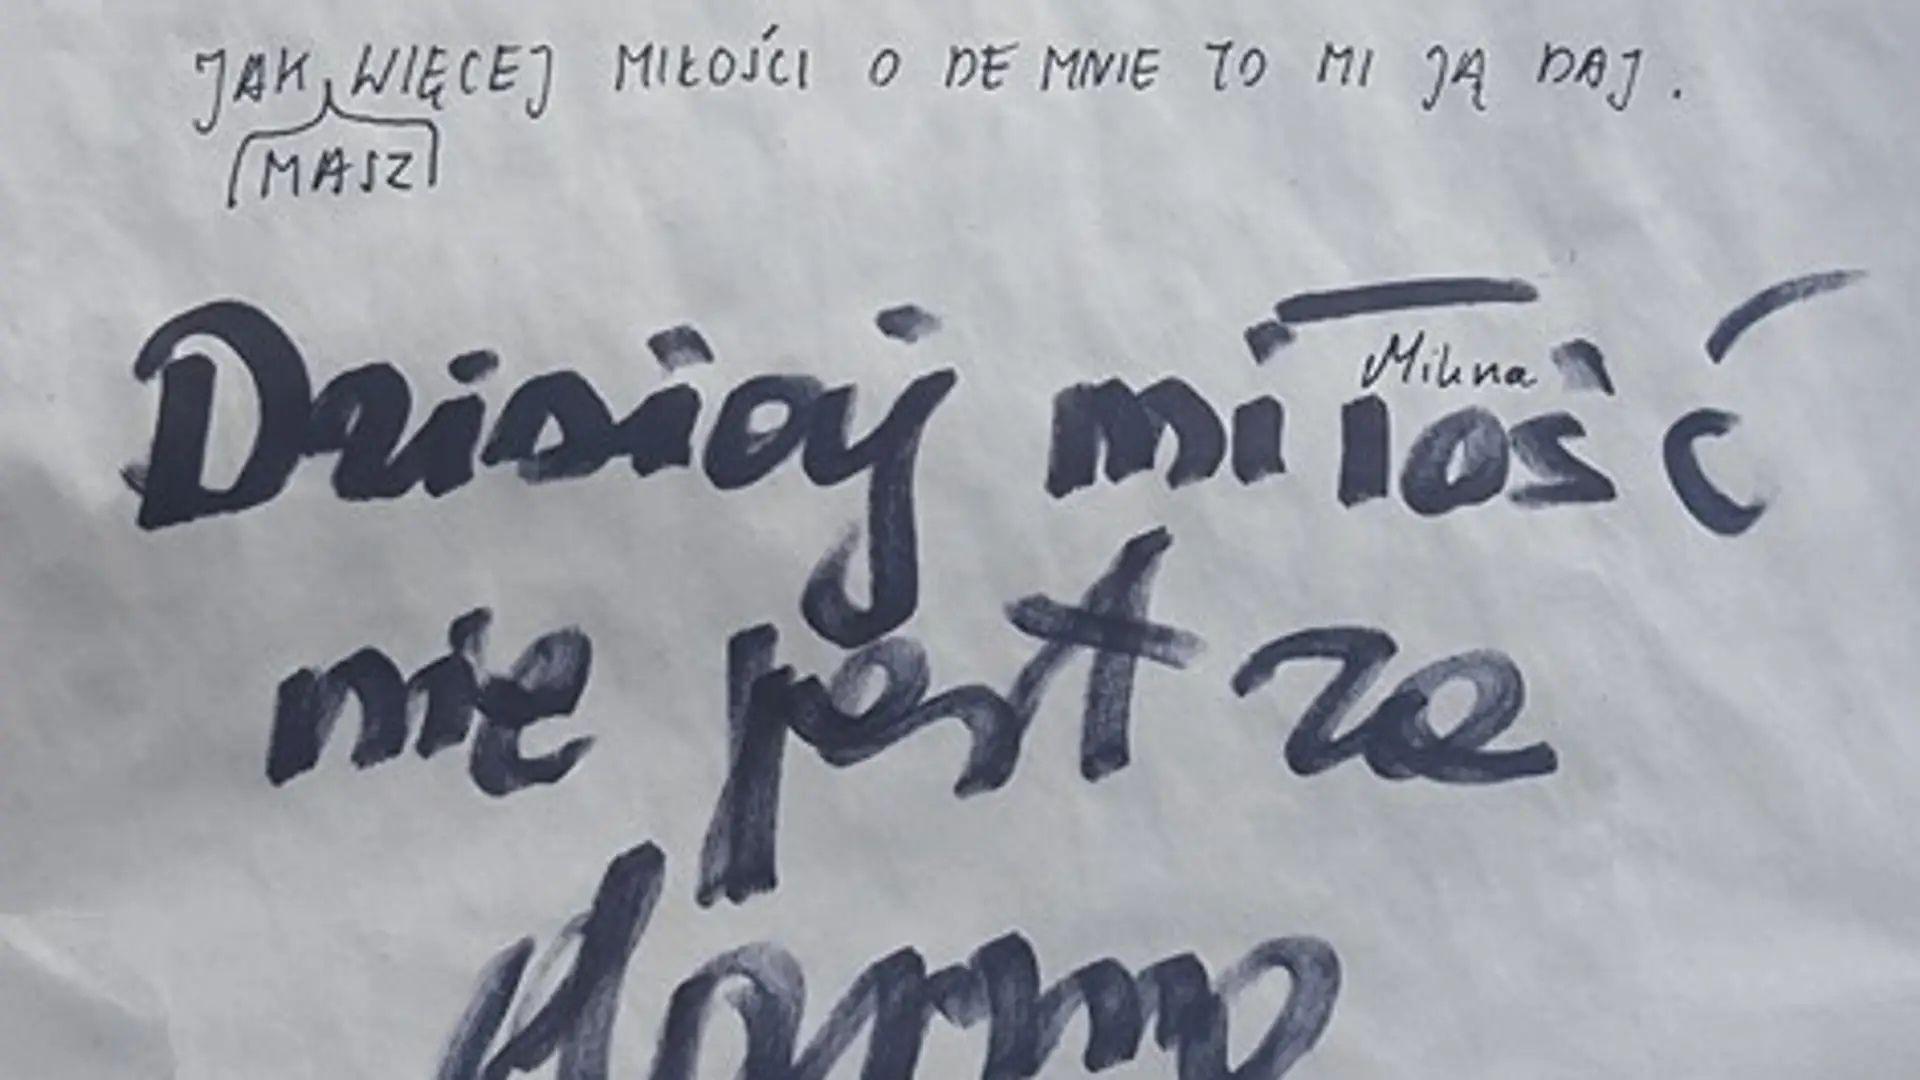 JAK WIĘCEJ MIŁOŚCI O DE MNIE TO MI JĄ DAJ.
MASZ
Milena
Dzisiaj miłość
nie jest za
darmo